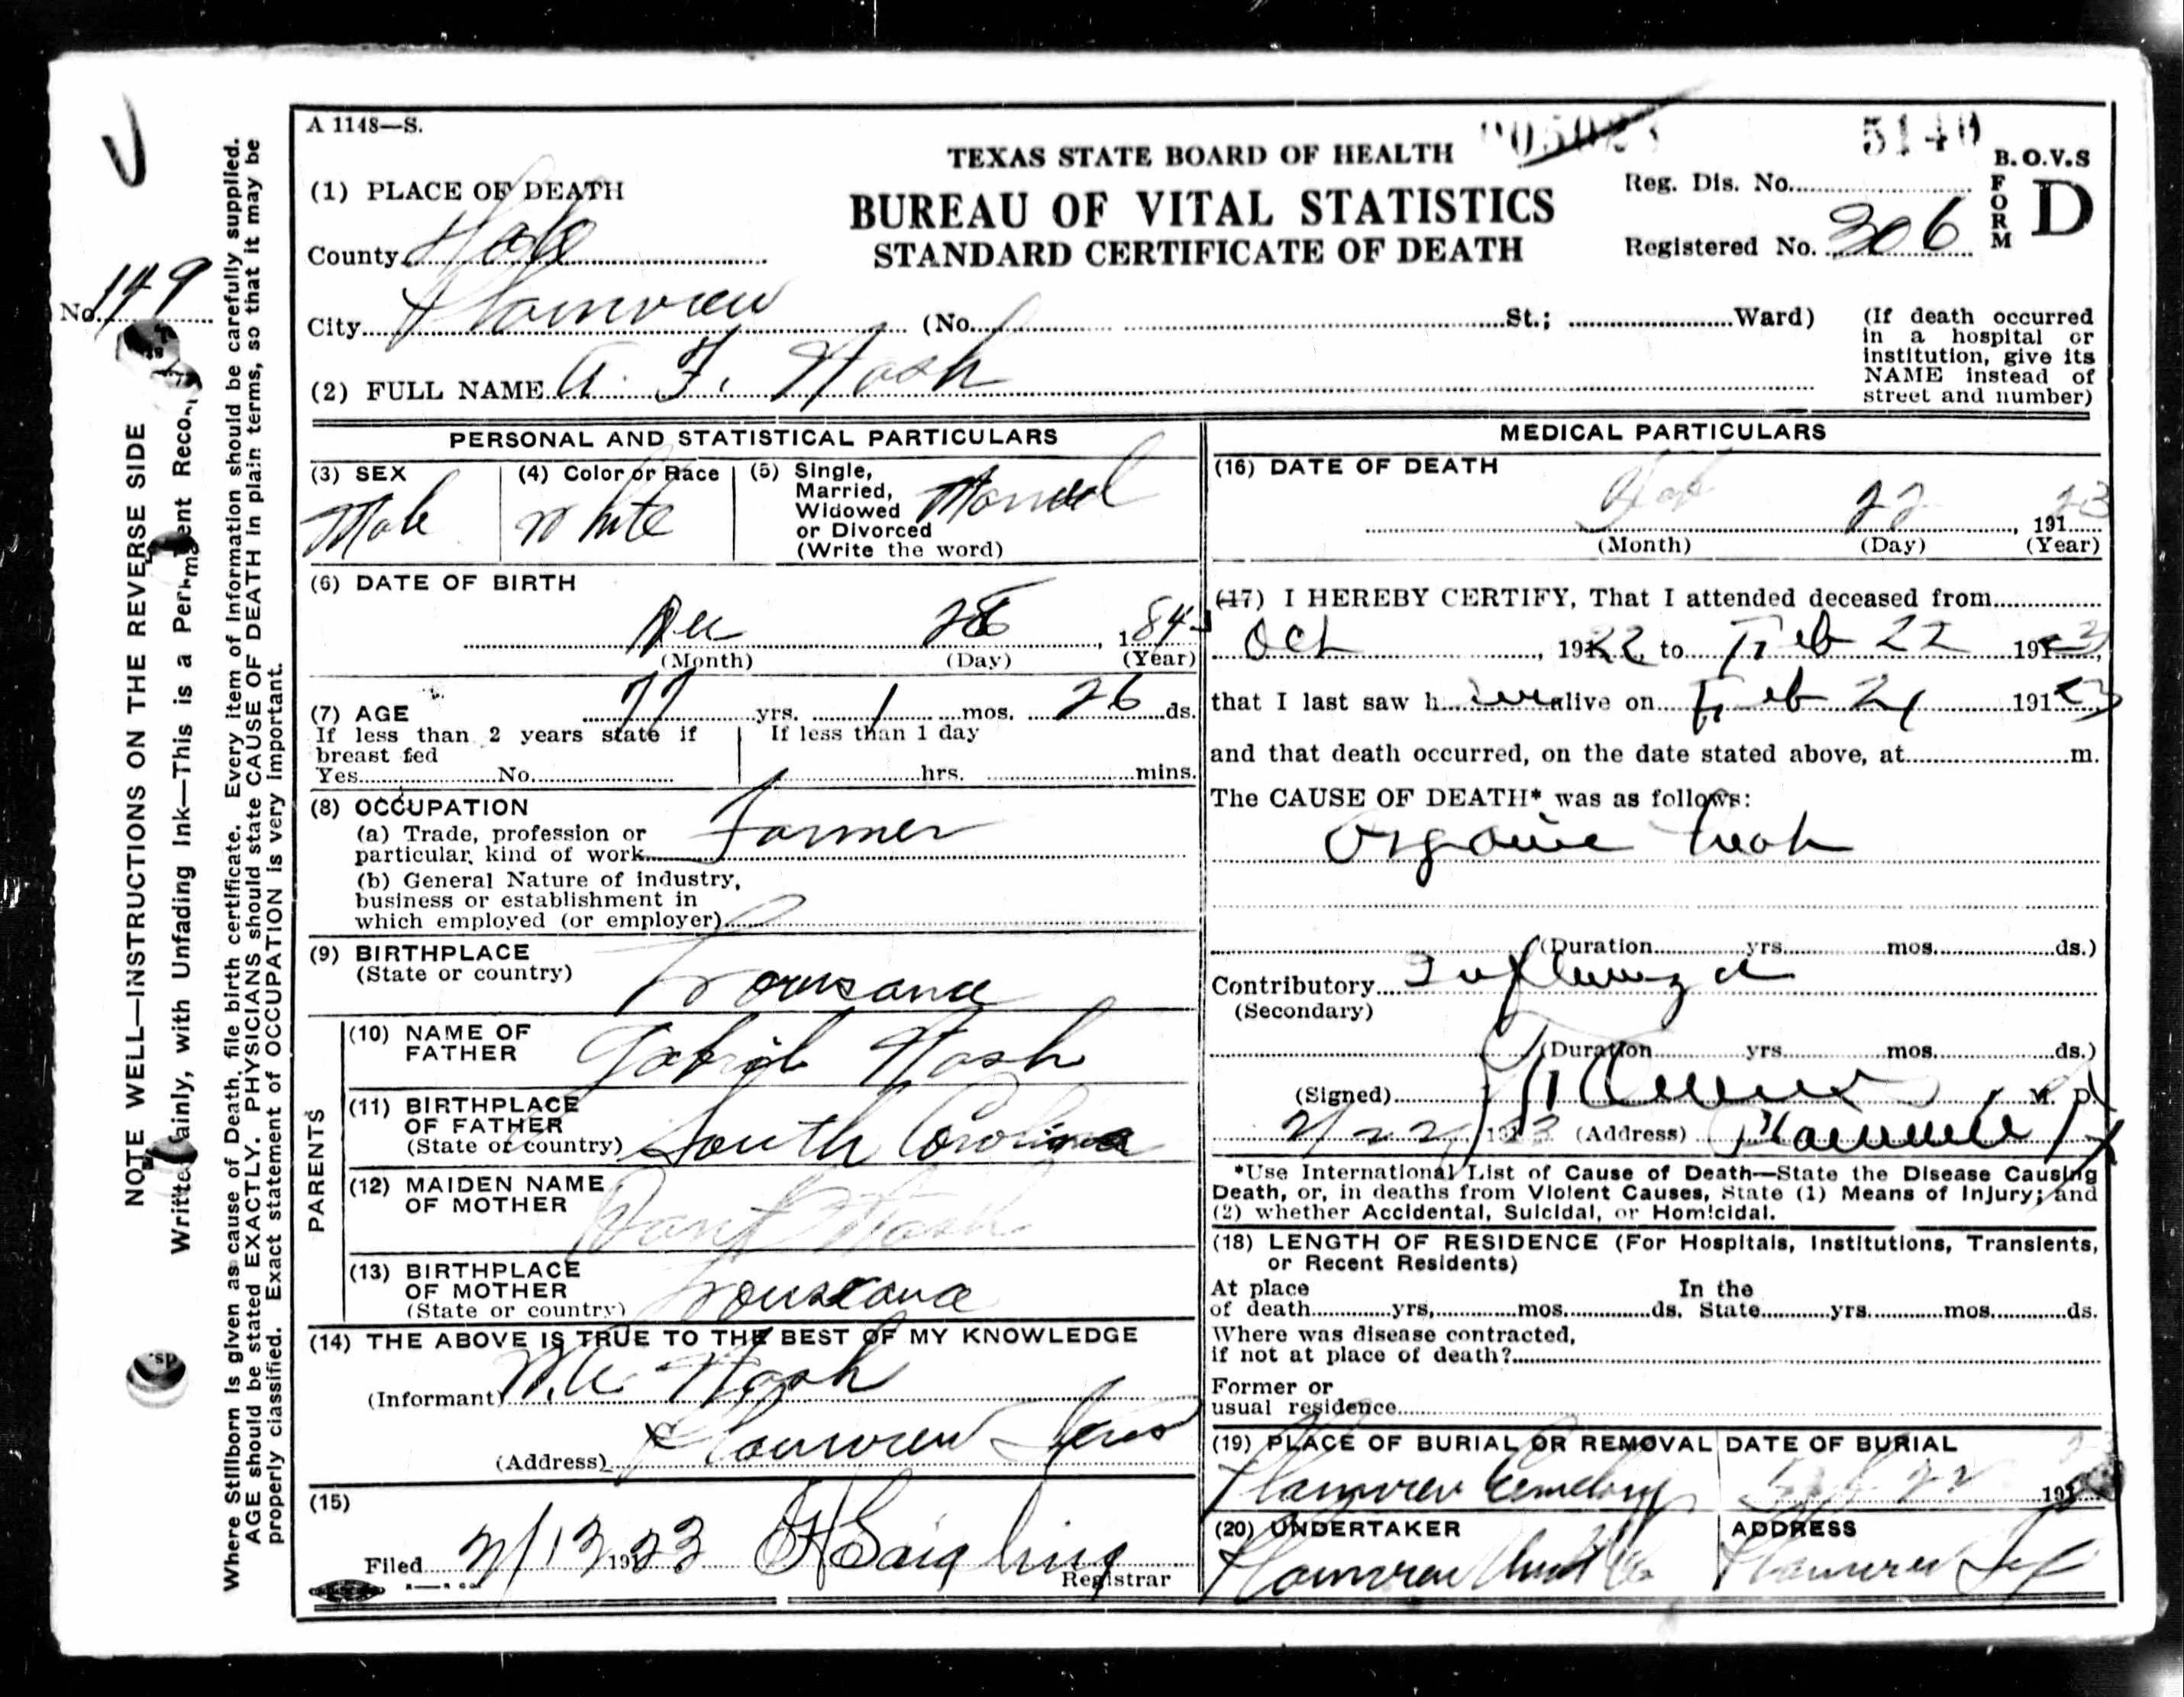 A 1148—S.
5140
TEXAS STATE BOARD OF HEALTH
BUREAU OF VITAL STATISTICS
STANDARD CERTIFICATE OF DEATH
B.O.V.S
FORM D
Reg. Dis. No.
Registered No. 306
(1) PLACE OF DEATH
County Hale
City Plainview (No. St.; Ward)
(If death occurred
in a hospital or
institution, give its
NAME instead of
street and number)
(2) FULL NAME A. F. Nash
PERSONAL AND STATISTICAL PARTICULARS
(3) SEX
Male
(4) Color or Race
White
(5) Single,
Married,
Widowed
or Divorced
(Write the word)
Married
(6) DATE OF BIRTH
Dec 28, 184
(Month) (Day) (Year)
(7) AGE 77 yrs. 1 mos. 26 ds.
If less than 2 years state if
breast fed
Yes No.
If less than 1 day
hrs. mins.
(8) OCCUPATION
(a) Trade, profession or
particular, kind of work Farmer
(b) General Nature of industry,
business or establishment in
which employed (or employer)
(9) BIRTHPLACE
(State or country) Louisana
PARENTS
(10) NAME OF
FATHER Nash
(11) BIRTHPLACE
OF FATHER
(State or country) South Carolina
(12) MAIDEN NAME
OF MOTHER Nash
(13) BIRTHPLACE
OF MOTHER
(State or country) Louisiana
(14) THE ABOVE IS TRUE TO THE BEST OF MY KNOWLEDGE
(Informant) Nash
(Address) Plainview Texas
(15)
Filed 1923
Registrar
MEDICAL PARTICULARS
(16) DATE OF DEATH
Feb 22, 1923
(Month) (Day) (Year)
(17) I HEREBY CERTIFY, That I attended deceased from
Oct, 1922, to Feb 22 1923,
that I last saw him alive on Feb 21 1923
and that death occurred, on the date stated above, at m.
The CAUSE OF DEATH* was as follows:
Organic heart
(Duration yrs. mos. ds.)
Contributory Influenza
(Secondary)
(Duration yrs. mos. ds.)
(Signed) M. D.
2/22, 1923 (Address) Plainview
*Use International List of Cause of Death—State the Disease Causing
Death, or, in deaths from Violent Causes, State (1) Means of Injury; and
(2) whether Accidental, Suicidal, or Homicidal.
(18) LENGTH OF RESIDENCE (For Hospitals, Institutions, Transients,
or Recent Residents)
At place In the
of death yrs. mos. ds. State yrs. mos. ds.
Where was disease contracted,
if not at place of death?
Former or
usual residence
(19) PLACE OF BURIAL OR REMOVAL
Plainview Cemetery
DATE OF BURIAL
22 192
(20) UNDERTAKER
Plainview Und Co
ADDRESS
Plainview Tex
No. 149
NOTE WELL—INSTRUCTIONS ON THE REVERSE SIDE
Written Plainly, with Unfading Ink—This is a Permanent Record
Where Stillborn is given as cause of Death, file birth certificate. Every item of Information should be carefully supplied.
AGE should be stated EXACTLY. PHYSICIANS should state CAUSE OF DEATH in plain terms, so that it may be
properly classified. Exact statement of OCCUPATION is very important.